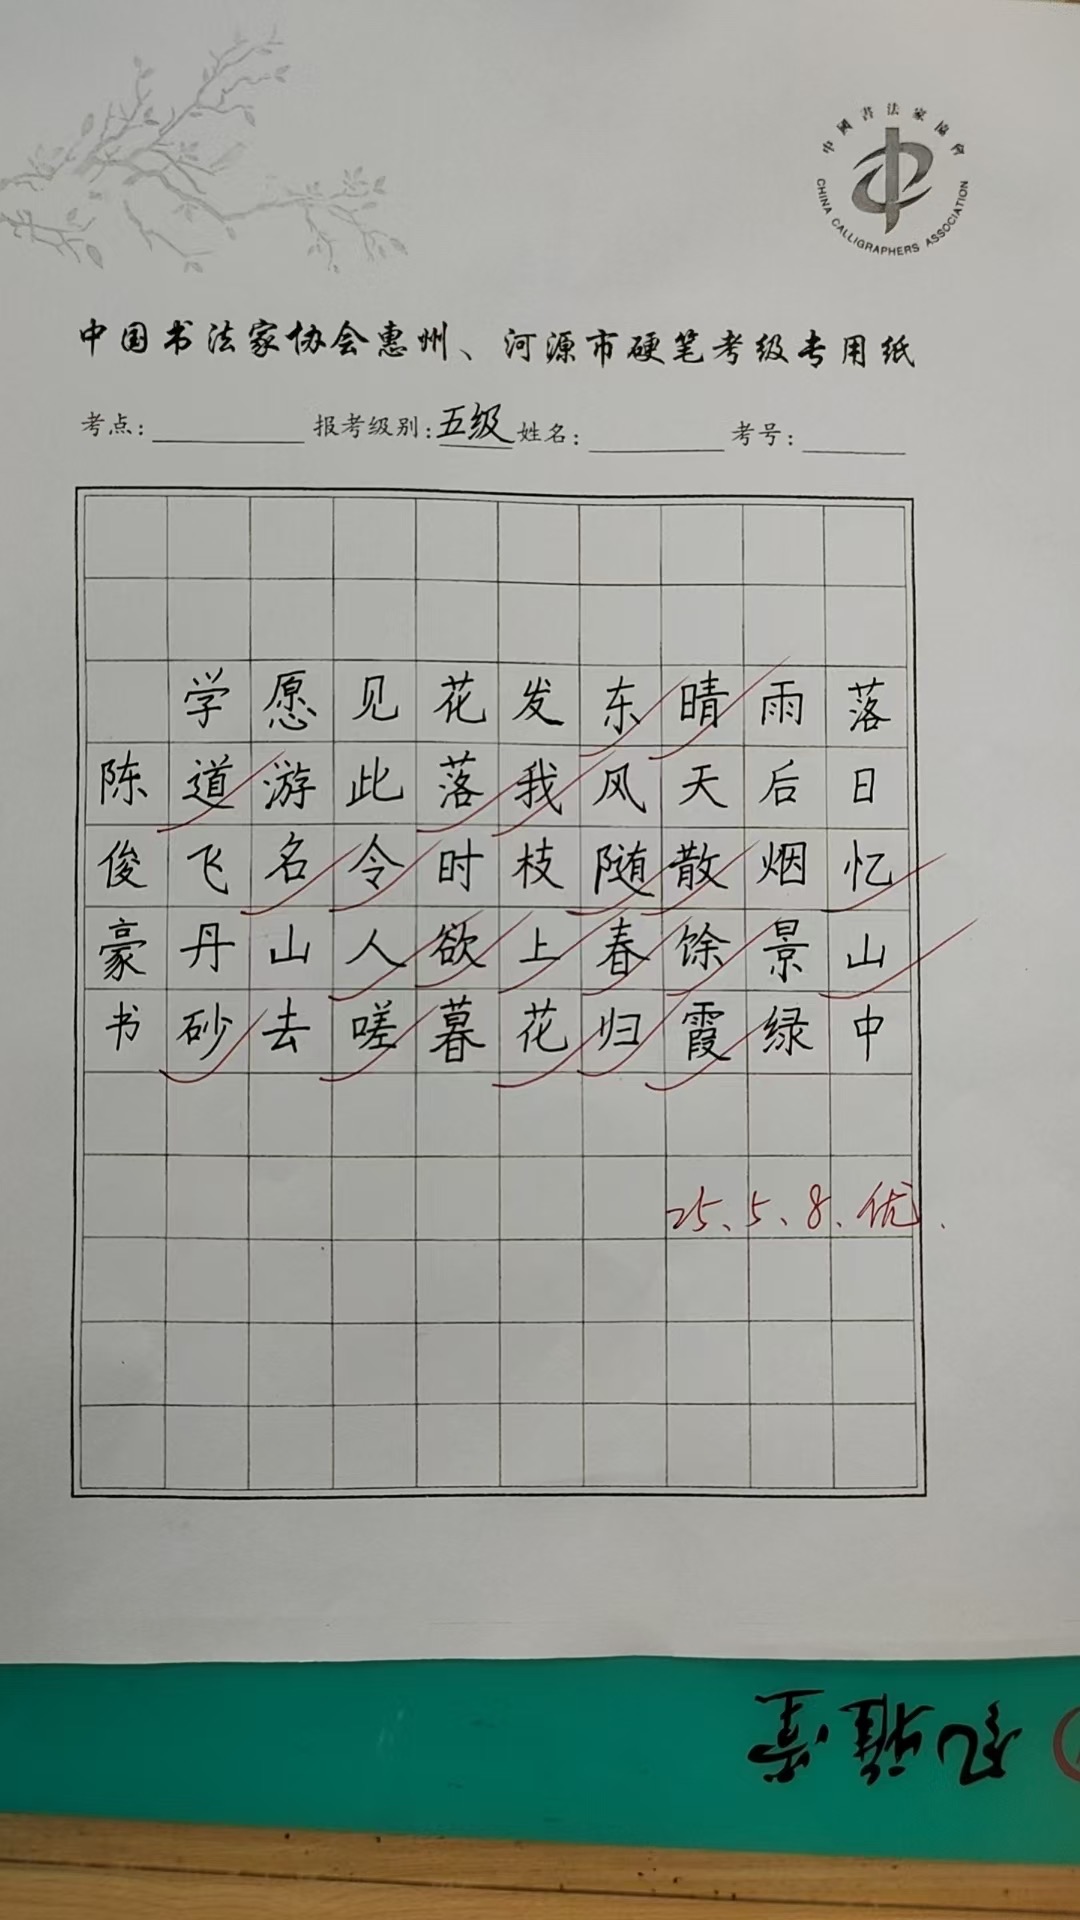 中國書法家協會
CHINA CALLIGRAPHERS ASSOCIATION
中国书法家协会惠州、河源市硬笔考级专用纸
考点: 报考级别:五级 姓名: 考号:
落日忆山中
雨后烟景绿
晴天散馀霞
东风随春归
发我枝上花
花落时欲暮
见此令人嗟
愿游名山去
学道飞丹砂
陈俊豪书
25、5、8、优.